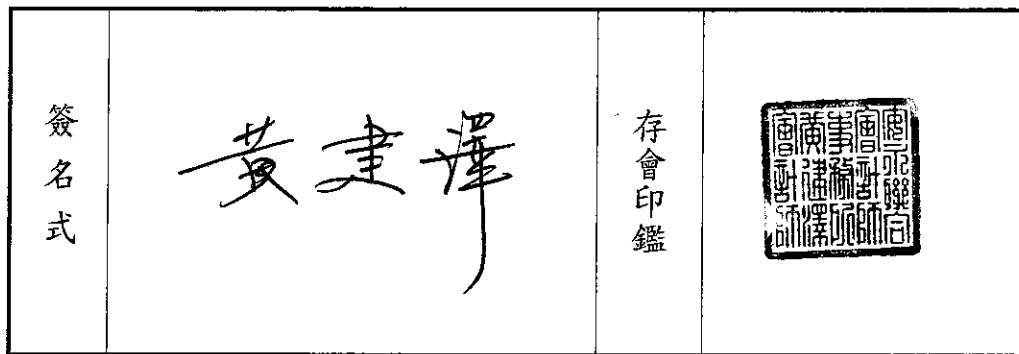 簽名式
黃建澤
存會印鑑
安永聯合
會計師
事務所
黃建澤
會計師